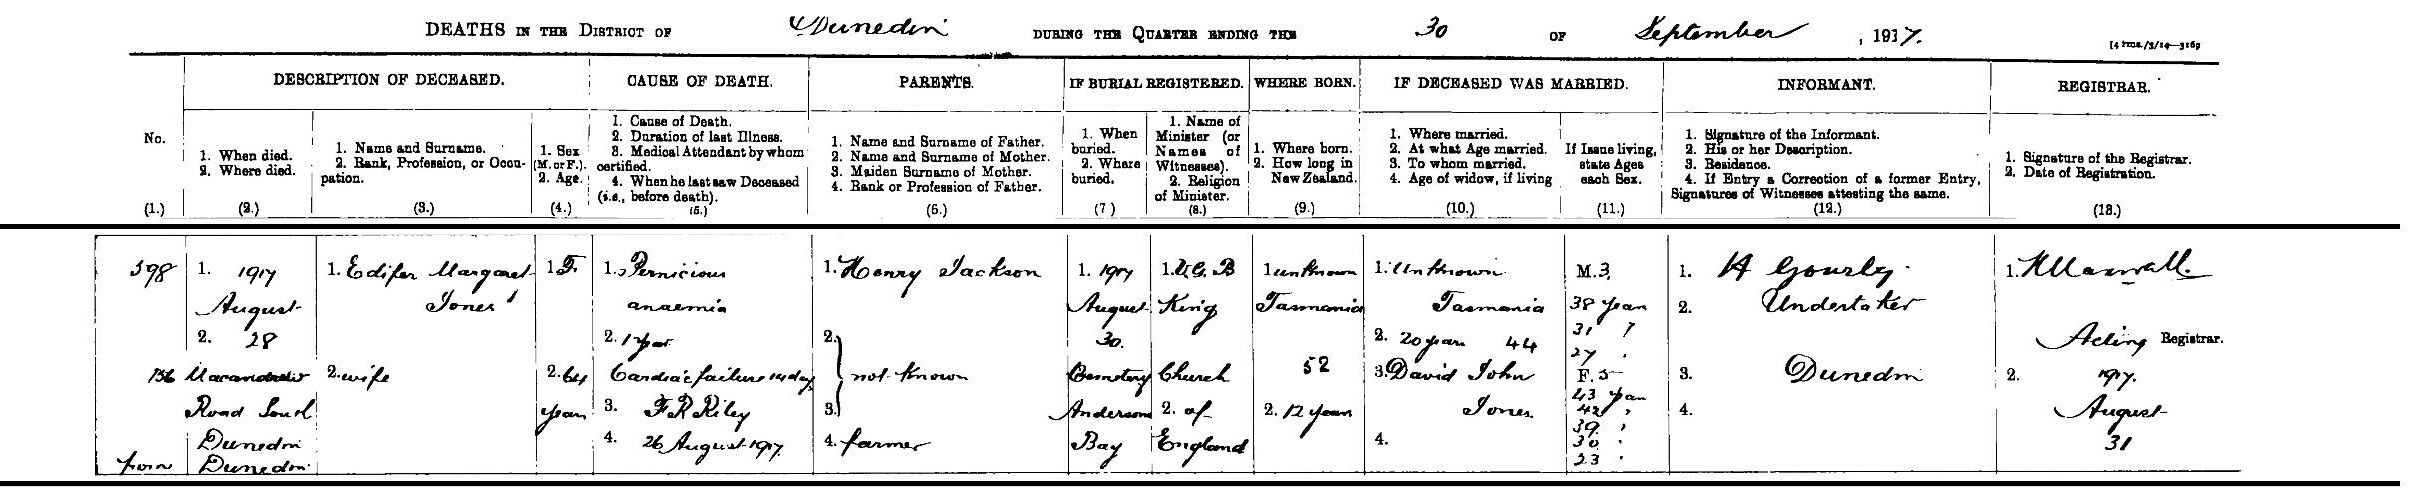 DEATHS IN THE DISTRICT OF Dunedin DURING THE QUARTER ENDING THE 30 OF September, 1917.
DESCRIPTION OF DECEASED. CAUSE OF DEATH. PARENTS. IF BURIAL REGISTERED. WHERE BORN. IF DECEASED WAS MARRIED. INFORMANT. REGISTRAR.
No.
(1.)
1. When died.
2. Where died.
(2.)
1. Name and Surname.
2. Rank, Profession, or Occu-
pation.
(3.)
1. Sex
(M. or F.).
2. Age.
(4.)
1. Cause of Death.
2. Duration of last Illness.
3. Medical Attendant by whom
certified.
4. When he last saw Deceased
(i.e., before death).
(5.)
1. Name and Surname of Father.
2. Name and Surname of Mother.
3. Maiden Surname of Mother.
4. Rank or Profession of Father.
(6.)
1. When
buried.
2. Where
buried.
(7)
1. Name of
Minister (or
Names of
Witnesses).
2. Religion
of Minister.
(8.)
1. Where born.
2. How long in
New Zealand.
(9.)
1. Where married.
2. At what Age married.
3. To whom married.
4. Age of widow, if living
(10.)
If Issue living,
state Ages
each Sex.
(11.)
1. Signature of the Informant.
2. His or her Description.
3. Residence.
4. If Entry a Correction of a former Entry,
Signatures of Witnesses attesting the same.
(12.)
1. Signature of the Registrar.
2. Date of Registration.
(13.)
598
1. 1917
August
2. 28
136 Macandrew
Road South
Dunedin
Dunedin
1. Edifer Margaret
Jones
2. wife
1. F.
2. 64
years
1. Pernicious
anaemia
2. 1 year
Cardiac failure 14 days
3. F R Riley
4. 26 August 1917.
1. Henry Jackson
2.
not known
3.
4. farmer
1. 1917
August
30.
Cemetery
Anderson
Bay
1. V. G. B
King
Church
2. of
England
1 unknown
Tasmania
52
2. 12 years
1. Unknown
Tasmania
2. 20 years 44
3. David John
Jones
4.
M. 3
38 years
31 "
27 "
F. 5
43 years
42 "
39 "
30 "
23 "
1. H Gourley
2. Undertaker
3. Dunedin
4.
1.
Acting Registrar.
2. 1917.
August
31